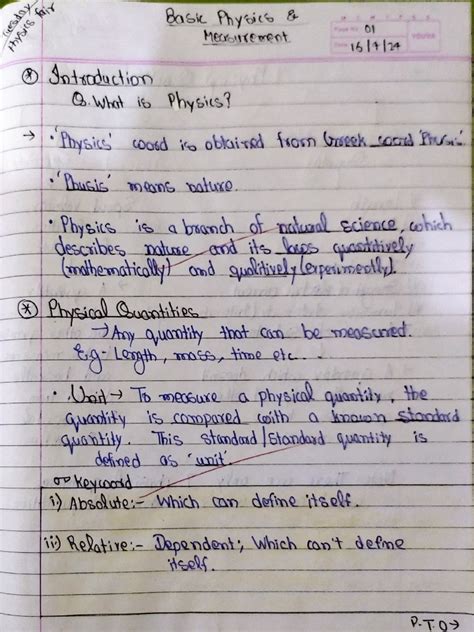 Tuesday
Physics fair
Basic Physics &
Measurement
Page No. 01
Date: 16/7/24
⊛ Introduction
Q. What is Physics?
→ • 'Physics' word is obtained from Greek word 'Phusis'
• 'Phusis' means nature.
• Physics is a branch of natural science, which
describes nature and its laws quantitively
(mathematically) and qualitively (experimently).
⊛ Physical Quantities
→ Any quantity that can be measured.
E.g- Length, mass, time etc..
• Unit → To measure a physical quantity, the
quantity is compared with a known standard
quantity. This standard/standard quantity is
defined as 'unit'.
Keyword
i) Absolute:- Which can define itself.
ii) Relative:- Dependent; Which can't define
itself.
P.T.O→